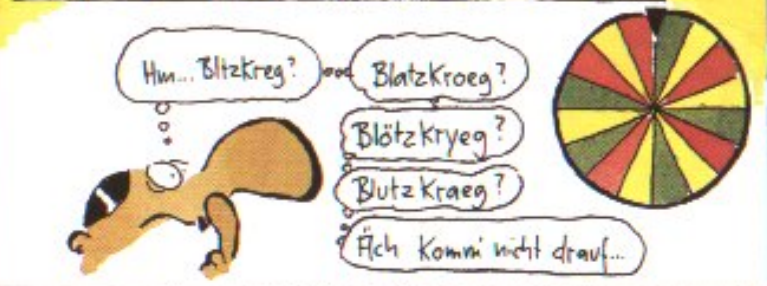 Hm... Bltzkreg?
Blatzkroeg?
Blötzkryeg?
Blutzkraeg?
Äch komm' nicht drauf...